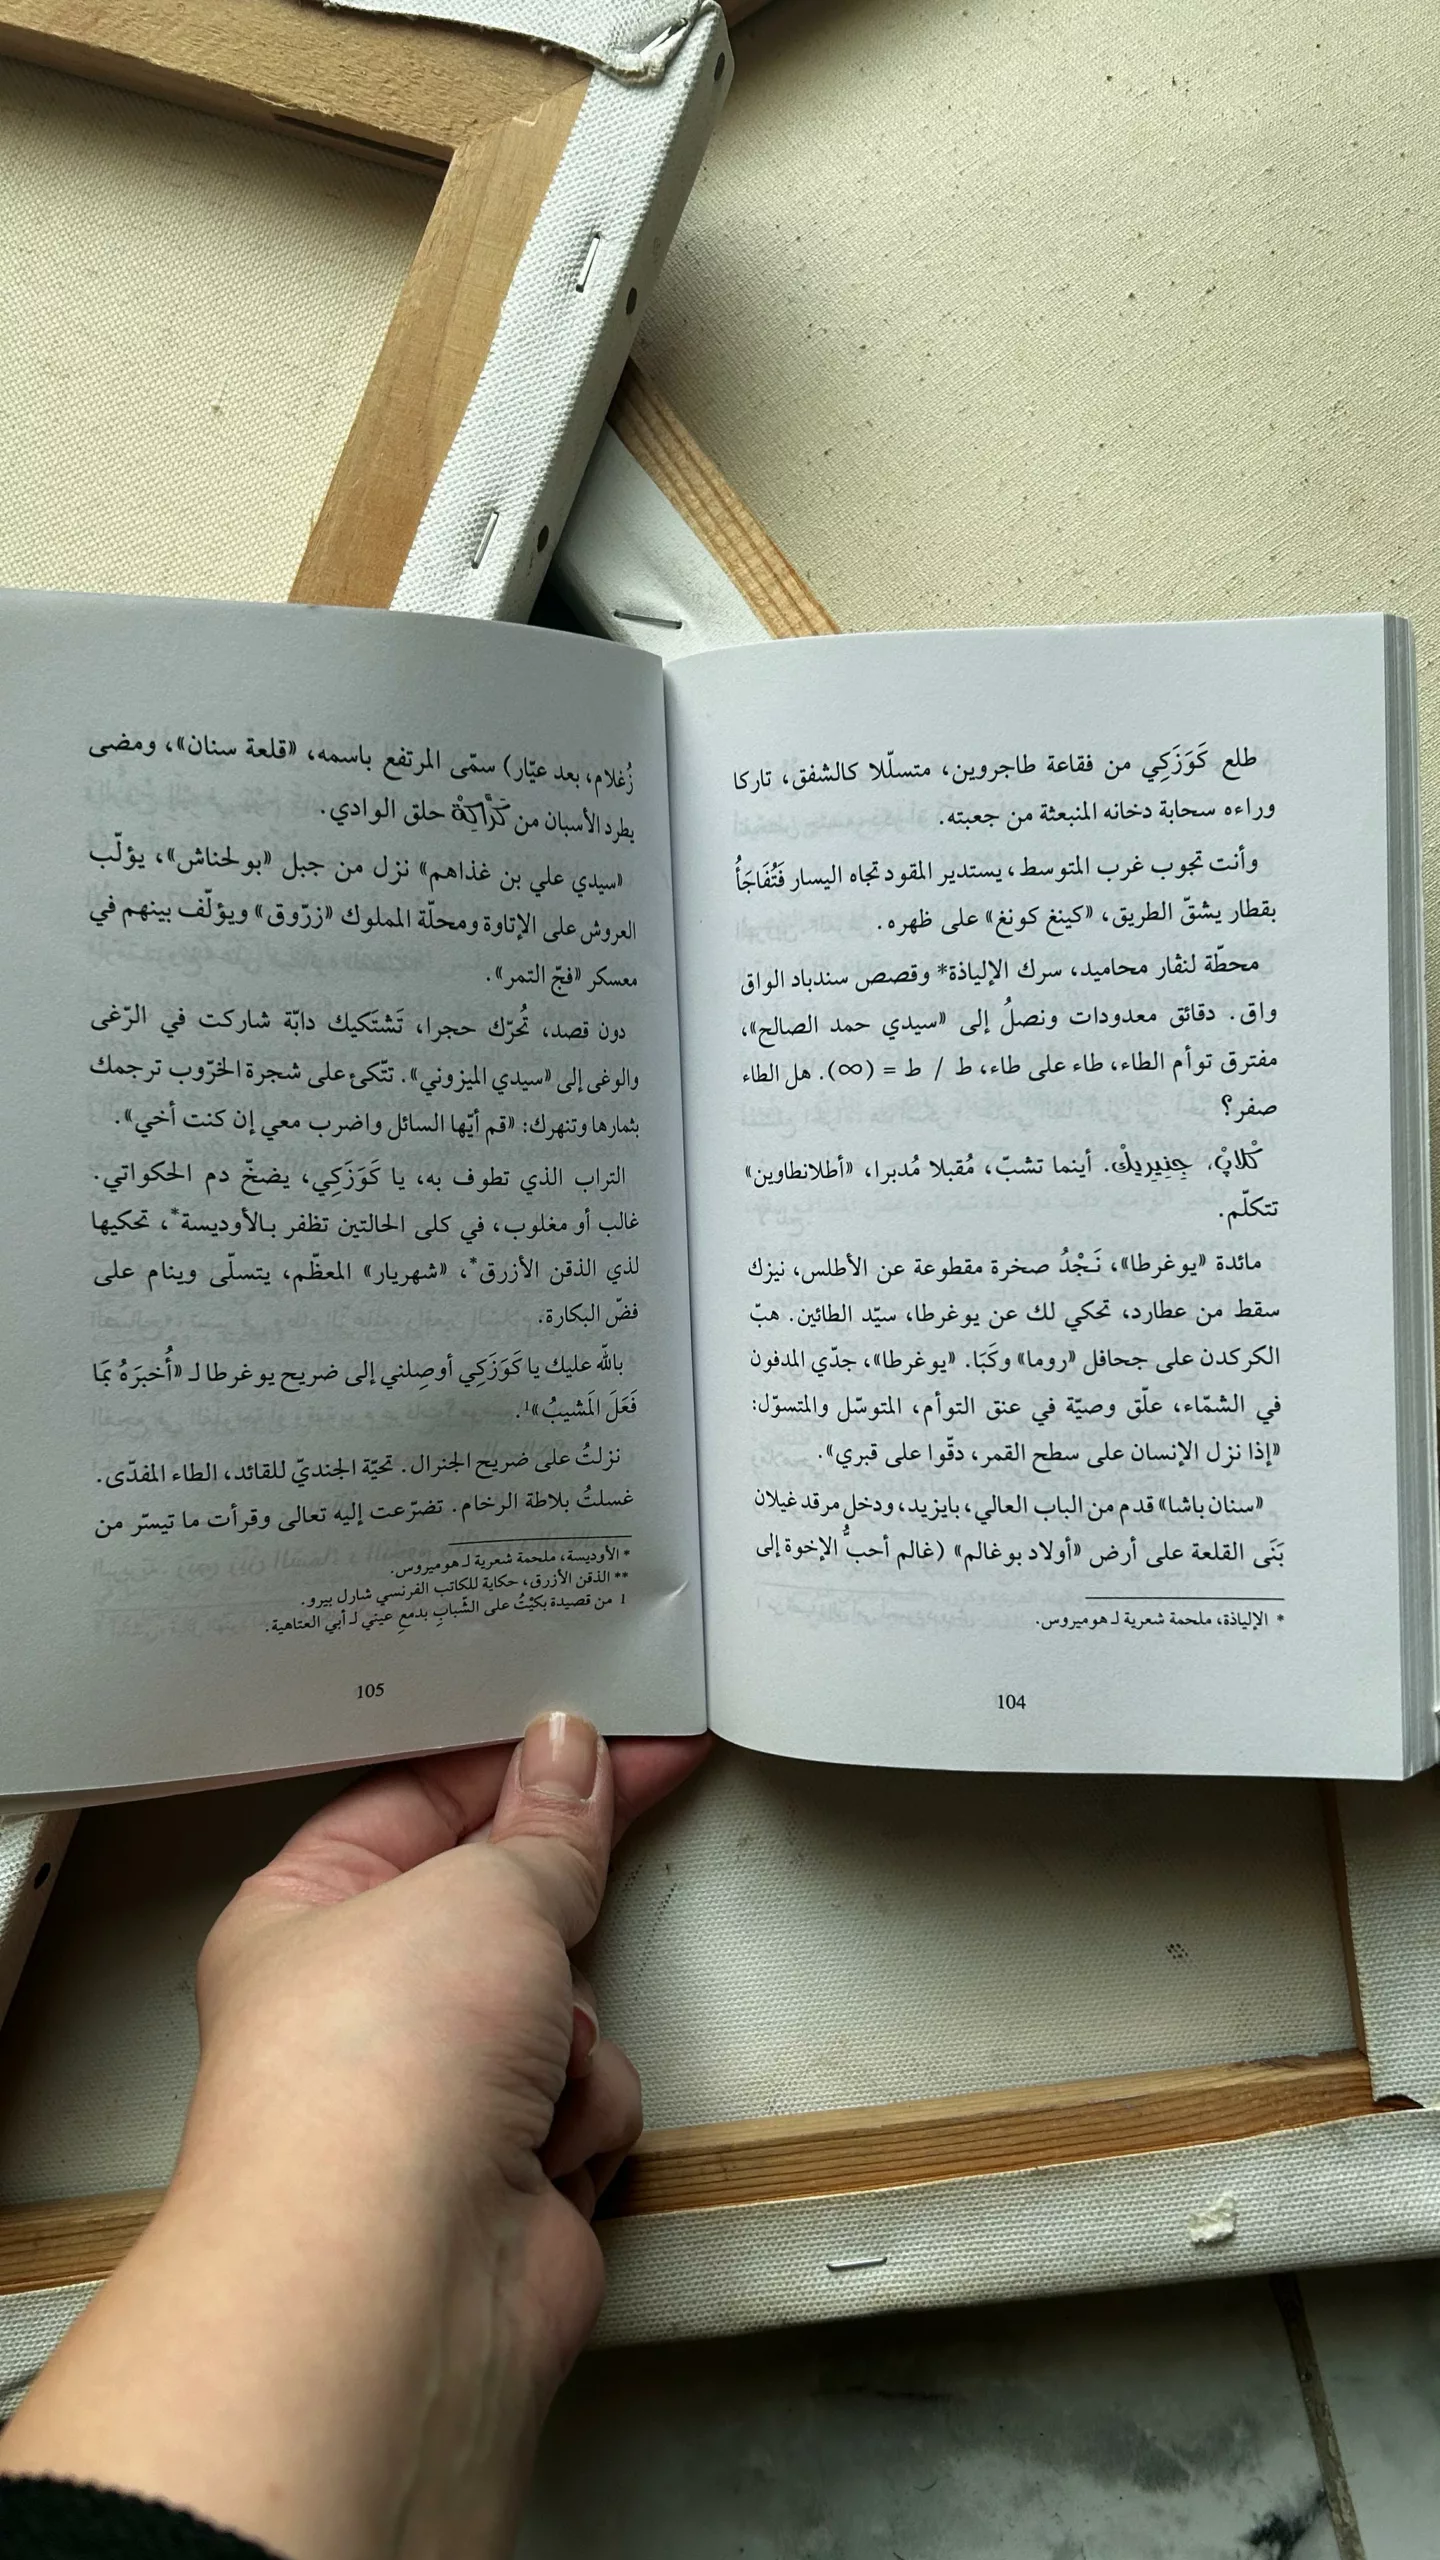 طلع كَوَزَكِي من فقاعة طاجروين، متسلّلا كالشفق، تاركا
وراءه سحابة دخانه المنبعثة من جعبته.
وأنت تجوب غرب المتوسط، يستدير المقود تجاه اليسار فَتُفَاجَأُ
بقطار يشقّ الطريق، «كينغ كونغ» على ظهره.
محطّة لنڤار محاميد، سرك الإلياذة* وقصص سندباد الواق
واق. دقائق معدودات ونصلُ إلى «سيدي حمد الصالح»،
مفترق توأم الطاء، طاء على طاء، ط / ط = (∞). هل الطاء
صفر؟
كْلاپْ، جِنِيرِيكْ. أينما تشبّ، مُقبلا مُدبرا، «أطلانطاوين»
تتكلّم.
مائدة «يوغرطا»، نَجْدُ صخرة مقطوعة عن الأطلس، نيزك
سقط من عطارد، تحكي لك عن يوغرطا، سيّد الطائين. هبّ
الكركدن على جحافل «روما» وكَبَا. «يوغرطا»، جدّي المدفون
في الشمّاء، علّق وصيّة في عنق التوأم، المتوسّل والمتسوّل:
«إذا نزل الإنسان على سطح القمر، دقّوا على قبري».
«سنان باشا» قدم من الباب العالي، بايزيد، ودخل مرقد غيلان
بَنَى القلعة على أرض «أولاد بوغالم» (غالم أحبُّ الإخوة إلى
* الإلياذة، ملحمة شعرية لـ هوميروس.
104
زُغلام، بعد عيّار) سمّى المرتفع باسمه، «قلعة سنان»، ومضى
يطرد الأسبان من كَرَّاكِةْ حلق الوادي.
«سيدي علي بن غذاهم» نزل من جبل «بولحناش»، يؤلّب
العروش على الإتاوة ومحلّة المملوك «زرّوق» ويؤلّف بينهم في
معسكر «فجّ التمر».
دون قصد، تُحرّك حجرا، تَشتَكيك دابّة شاركت في الرّغى
والوغى إلى «سيدي الميزوني». تتّكئ على شجرة الخرّوب ترجمك
بثمارها وتنهرك: «قم أيّها السائل واضرب معي إن كنت أخي».
التراب الذي تطوف به، يا كَوَزَكِي، يضخّ دم الحكواتي.
غالب أو مغلوب، في كلى الحالتين تظفر بالأوديسة*، تحكيها
لذي الذقن الأزرق*، «شهريار» المعظّم، يتسلّى وينام على
فضّ البكارة.
بالله عليك يا كَوَزَكِي أوصِلني إلى ضريح يوغرطا لـ «أُخبرَهُ بمَا
فَعَلَ المَشيبُ»1.
نزلتُ على ضريح الجنرال. تحيّة الجنديّ للقائد، الطاء المفدّى.
غسلتُ بلاطة الرخام. تضرّعت إليه تعالى وقرأت ما تيسّر من
* الأوديسة، ملحمة شعرية لـ هوميروس.
** الذقن الأزرق، حكاية للكاتب الفرنسي شارل بيرو.
1 من قصيدة بكيْتُ على الشّبابِ بدمعِ عيني لـ أبي العتاهية.
105